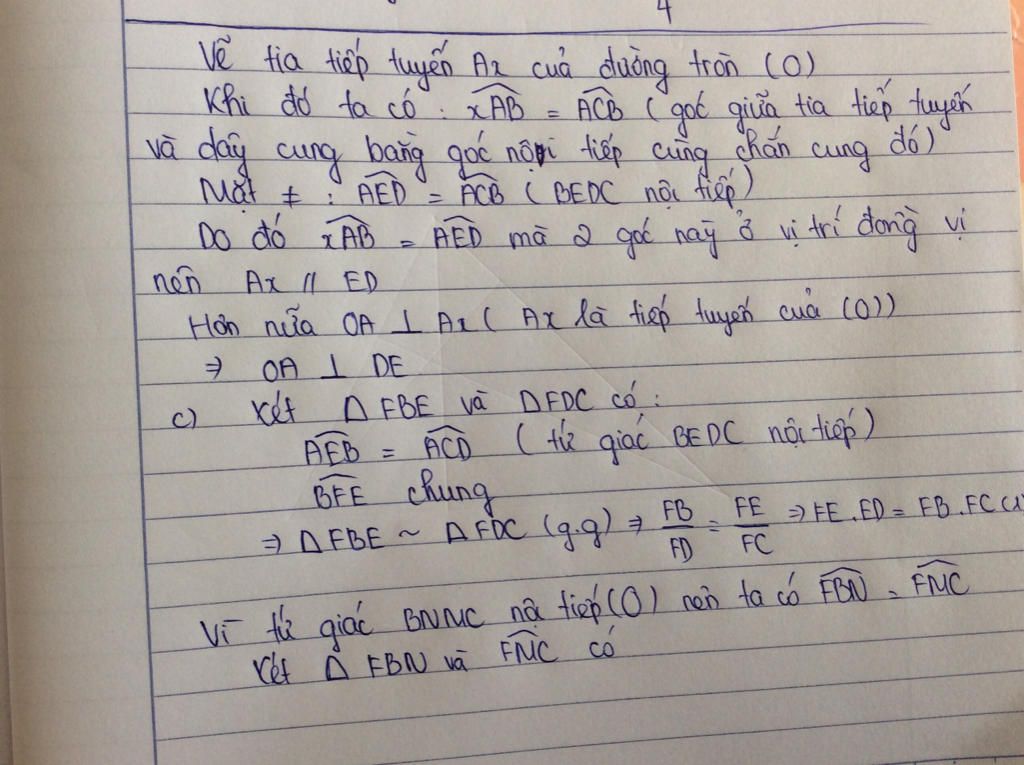 4
Vẽ tia tiếp tuyến Ax của đường tròn (O)
Khi đó ta có : xAB = ACB ( góc giữa tia tiếp tuyến
và dây cung bằng góc nội tiếp cùng chắn cung đó)
Mặt ≠ : AED = ACB ( BEDC nội tiếp)
Do đó xAB = AED mà 2 góc này ở vị trí đồng vị
nên Ax // ED
Hơn nữa OA ⊥ Ax ( Ax là tiếp tuyến của (O))
⇒ OA ⊥ DE
c) Xét Δ FBE và ΔFDC có :
AEB = ACD ( tứ giác BEDC nội tiếp)
BFE chung
⇒ Δ FBE ~ Δ FDC (g.g) ⇒ FB/FD = FE/FC ⇒ FE.FD = FB.FC (1
Vì tứ giác BNMC nội tiếp (O) nên ta có FBN = FMC
Xét Δ FBN và FMC có